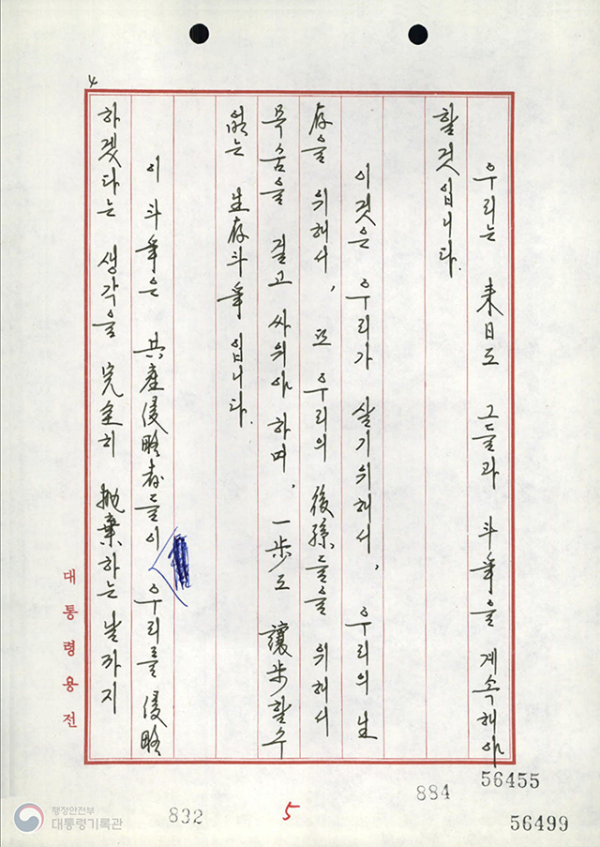 4
우리는 來日도 그들과 斗爭을 계속해야
할것입니다.
이것은 우리가 살기위해서, 우리의 生
存을 위해서, 또 우리의 後孫들을 위해서
목숨을 걸고 싸워야 하며, 一步도 讓步할수
없는 生存斗爭입니다.
이 斗爭은 共産侵略者들이 우리를 侵略
하겠다는 생각을 完全히 抛棄하는 날까지
대통령용전
행정안전부
대통령기록관
832
5
884
56455
56499